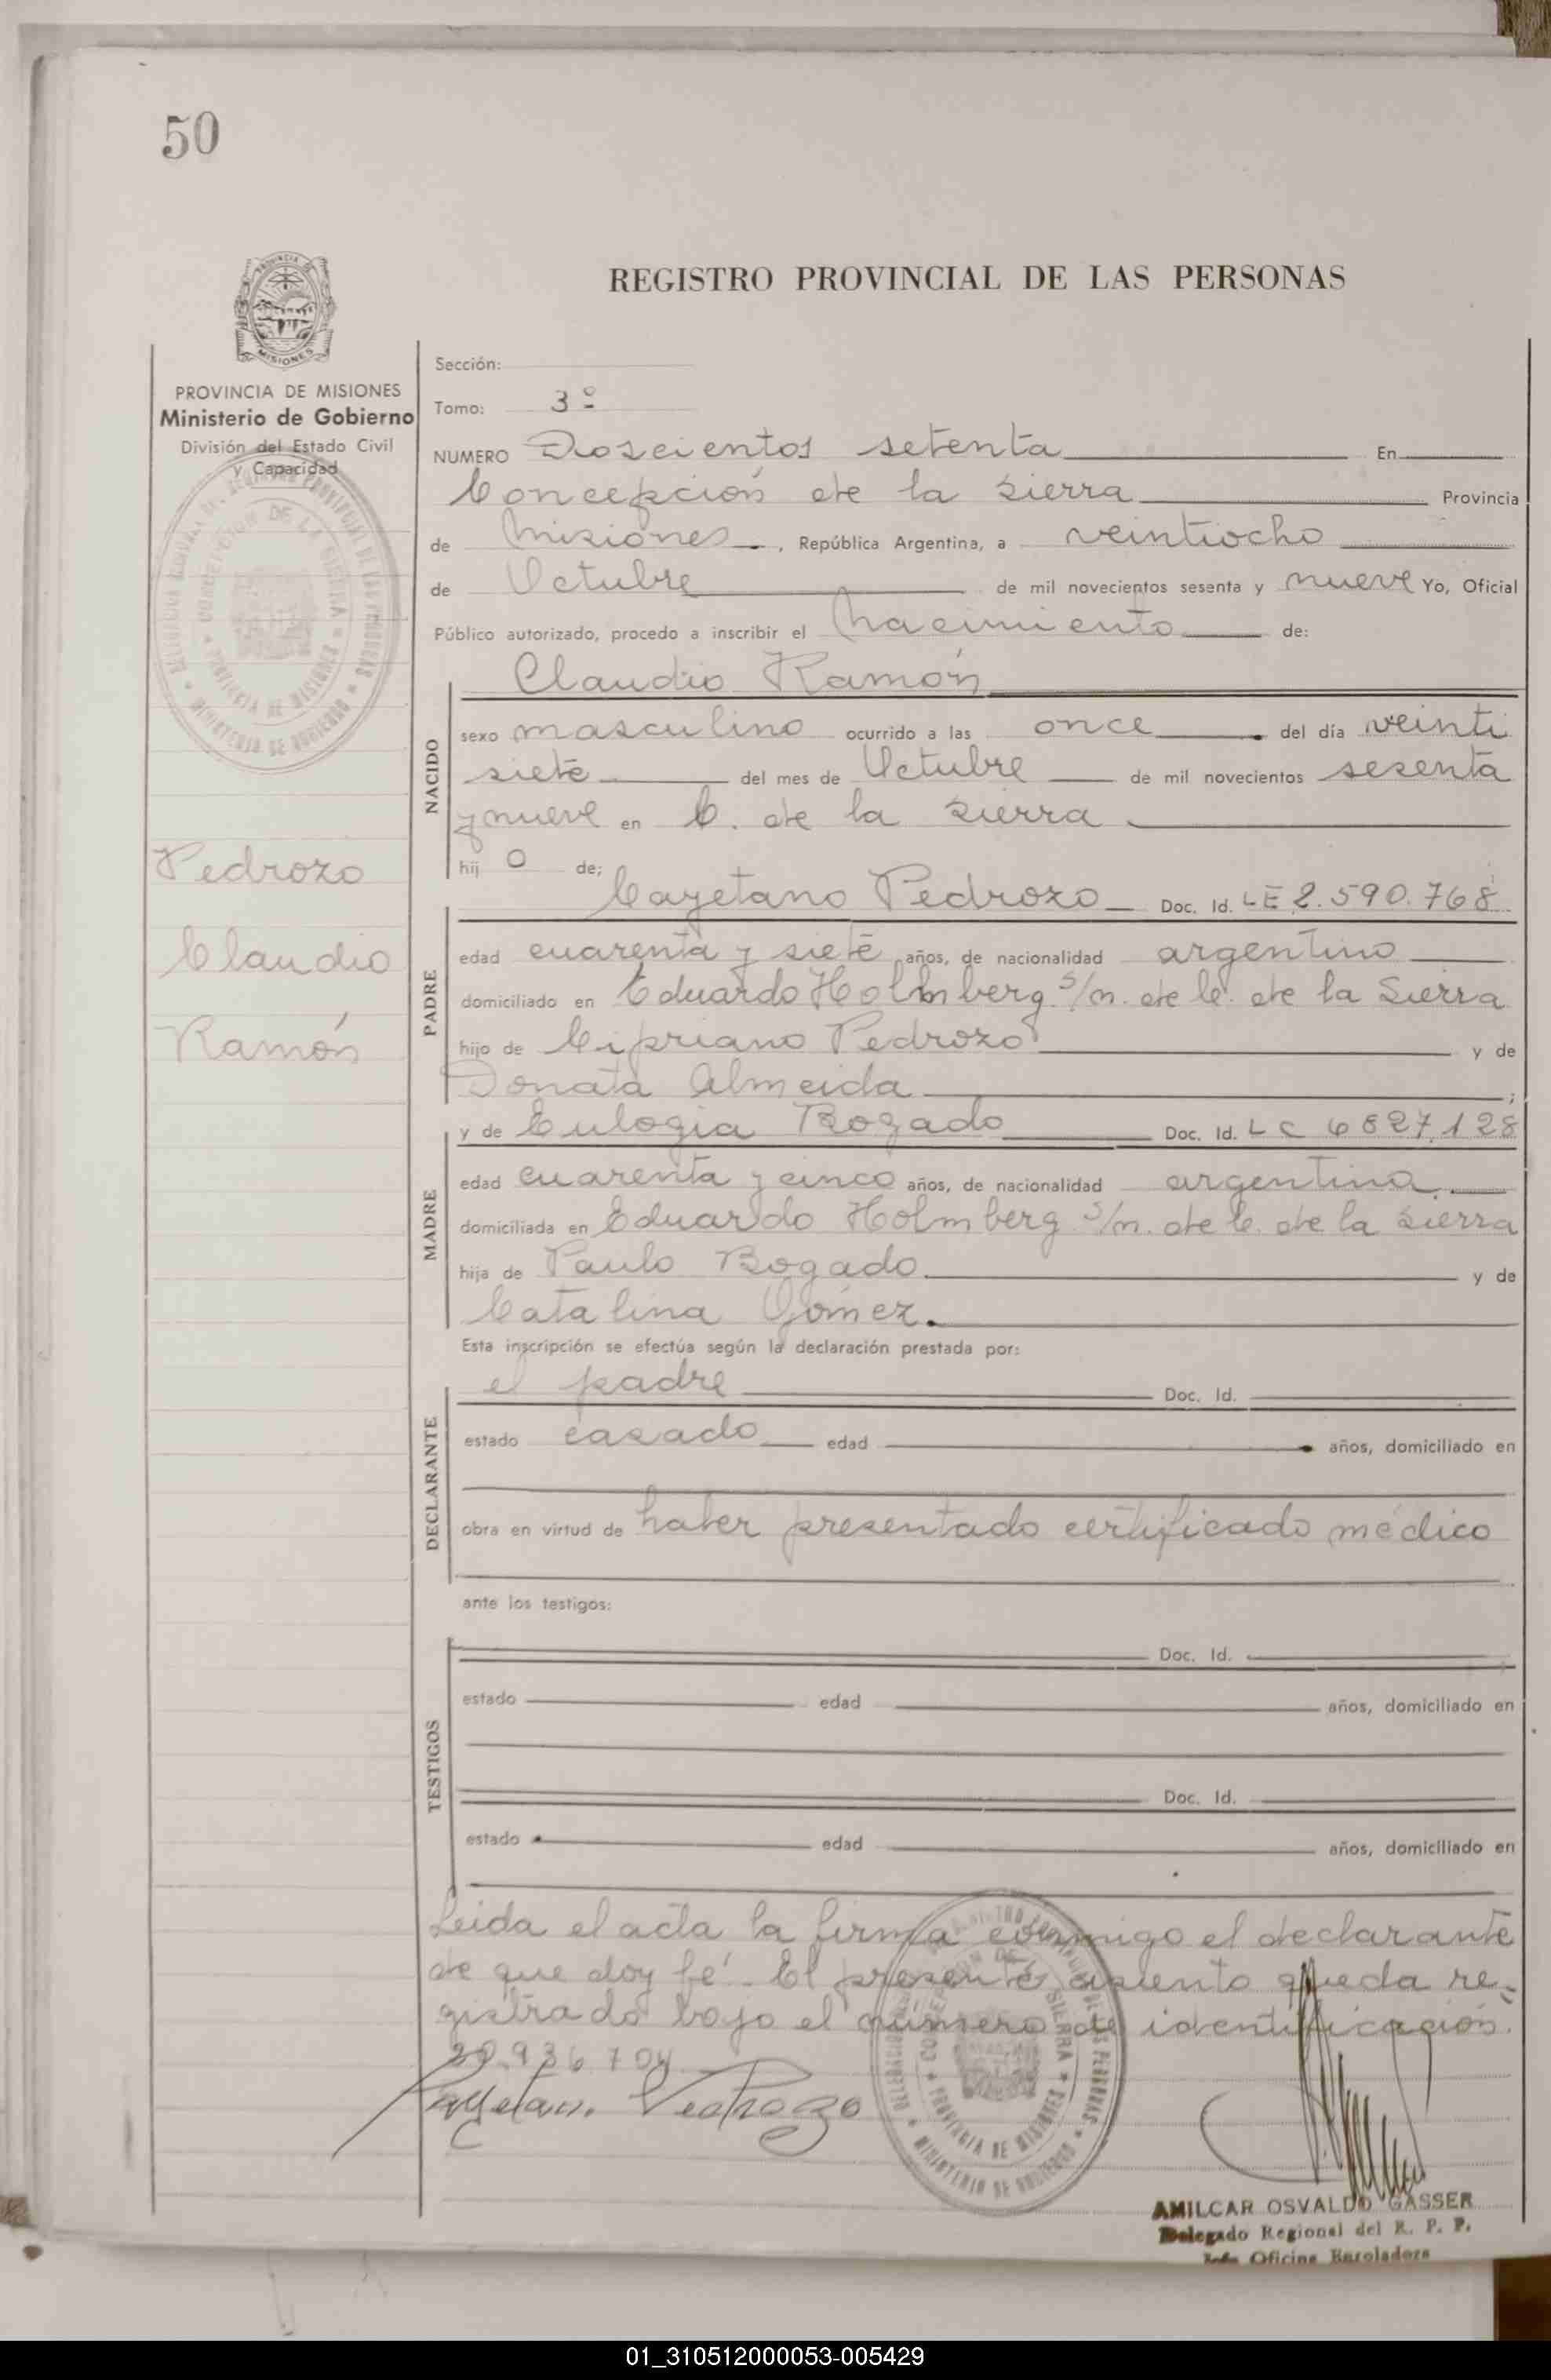 50
REGISTRO PROVINCIAL DE LAS PERSONAS
MISIONES
PROVINCIA DE MISIONES
Ministerio de Gobierno
División del Estado Civil
y Capacidad
Sección:
Tomo: 3º
NUMERO Doscientos setenta En
Concepción de la Sierra Provincia
de Misiones, República Argentina, a veintiocho
de Octubre de mil novecientos sesenta y nueve Yo, Oficial
Público autorizado, procedo a inscribir el nacimiento de:
Claudio Ramón
NACIDO
sexo masculino ocurrido a las once del día veinti
siete del mes de Octubre de mil novecientos sesenta
y nueve en C. de la Sierra
hij o de;
Pedrozo
Claudio
Ramón
PADRE
Cayetano Pedrozo Doc. Id. LE 2.590.768
edad cuarenta y siete años, de nacionalidad argentino
domiciliado en Eduardo Holmberg s/n. de C. de la Sierra
hijo de Cipriano Pedrozo y de
Donata Almeida ;
MADRE
y de Eulogia Bogado Doc. Id. LC 6827.128
edad cuarenta y cinco años, de nacionalidad argentina.
domiciliada en Eduardo Holmberg s/n. de C. de la Sierra
hija de Paulo Bogado y de
Catalina Gómez.
Esta inscripción se efectúa según la declaración prestada por:
DECLARANTE
el padre Doc. Id.
estado casado edad años, domiciliado en
obra en virtud de haber presentado certificado médico
ante los testigos:
TESTIGOS
Doc. Id.
estado edad años, domiciliado en
Doc. Id.
estado edad años, domiciliado en
Leida el acta la firma conmigo el declarante
de que doy fé. El presente asiento queda re-
gistrado bajo el número de identificación.
20.936.704
Cayetano Pedrozo
AMILCAR OSVALDO GASSER
Delegado Regional del R. P. P.
Jefe Oficina Enroladora
01_310512000053-005429